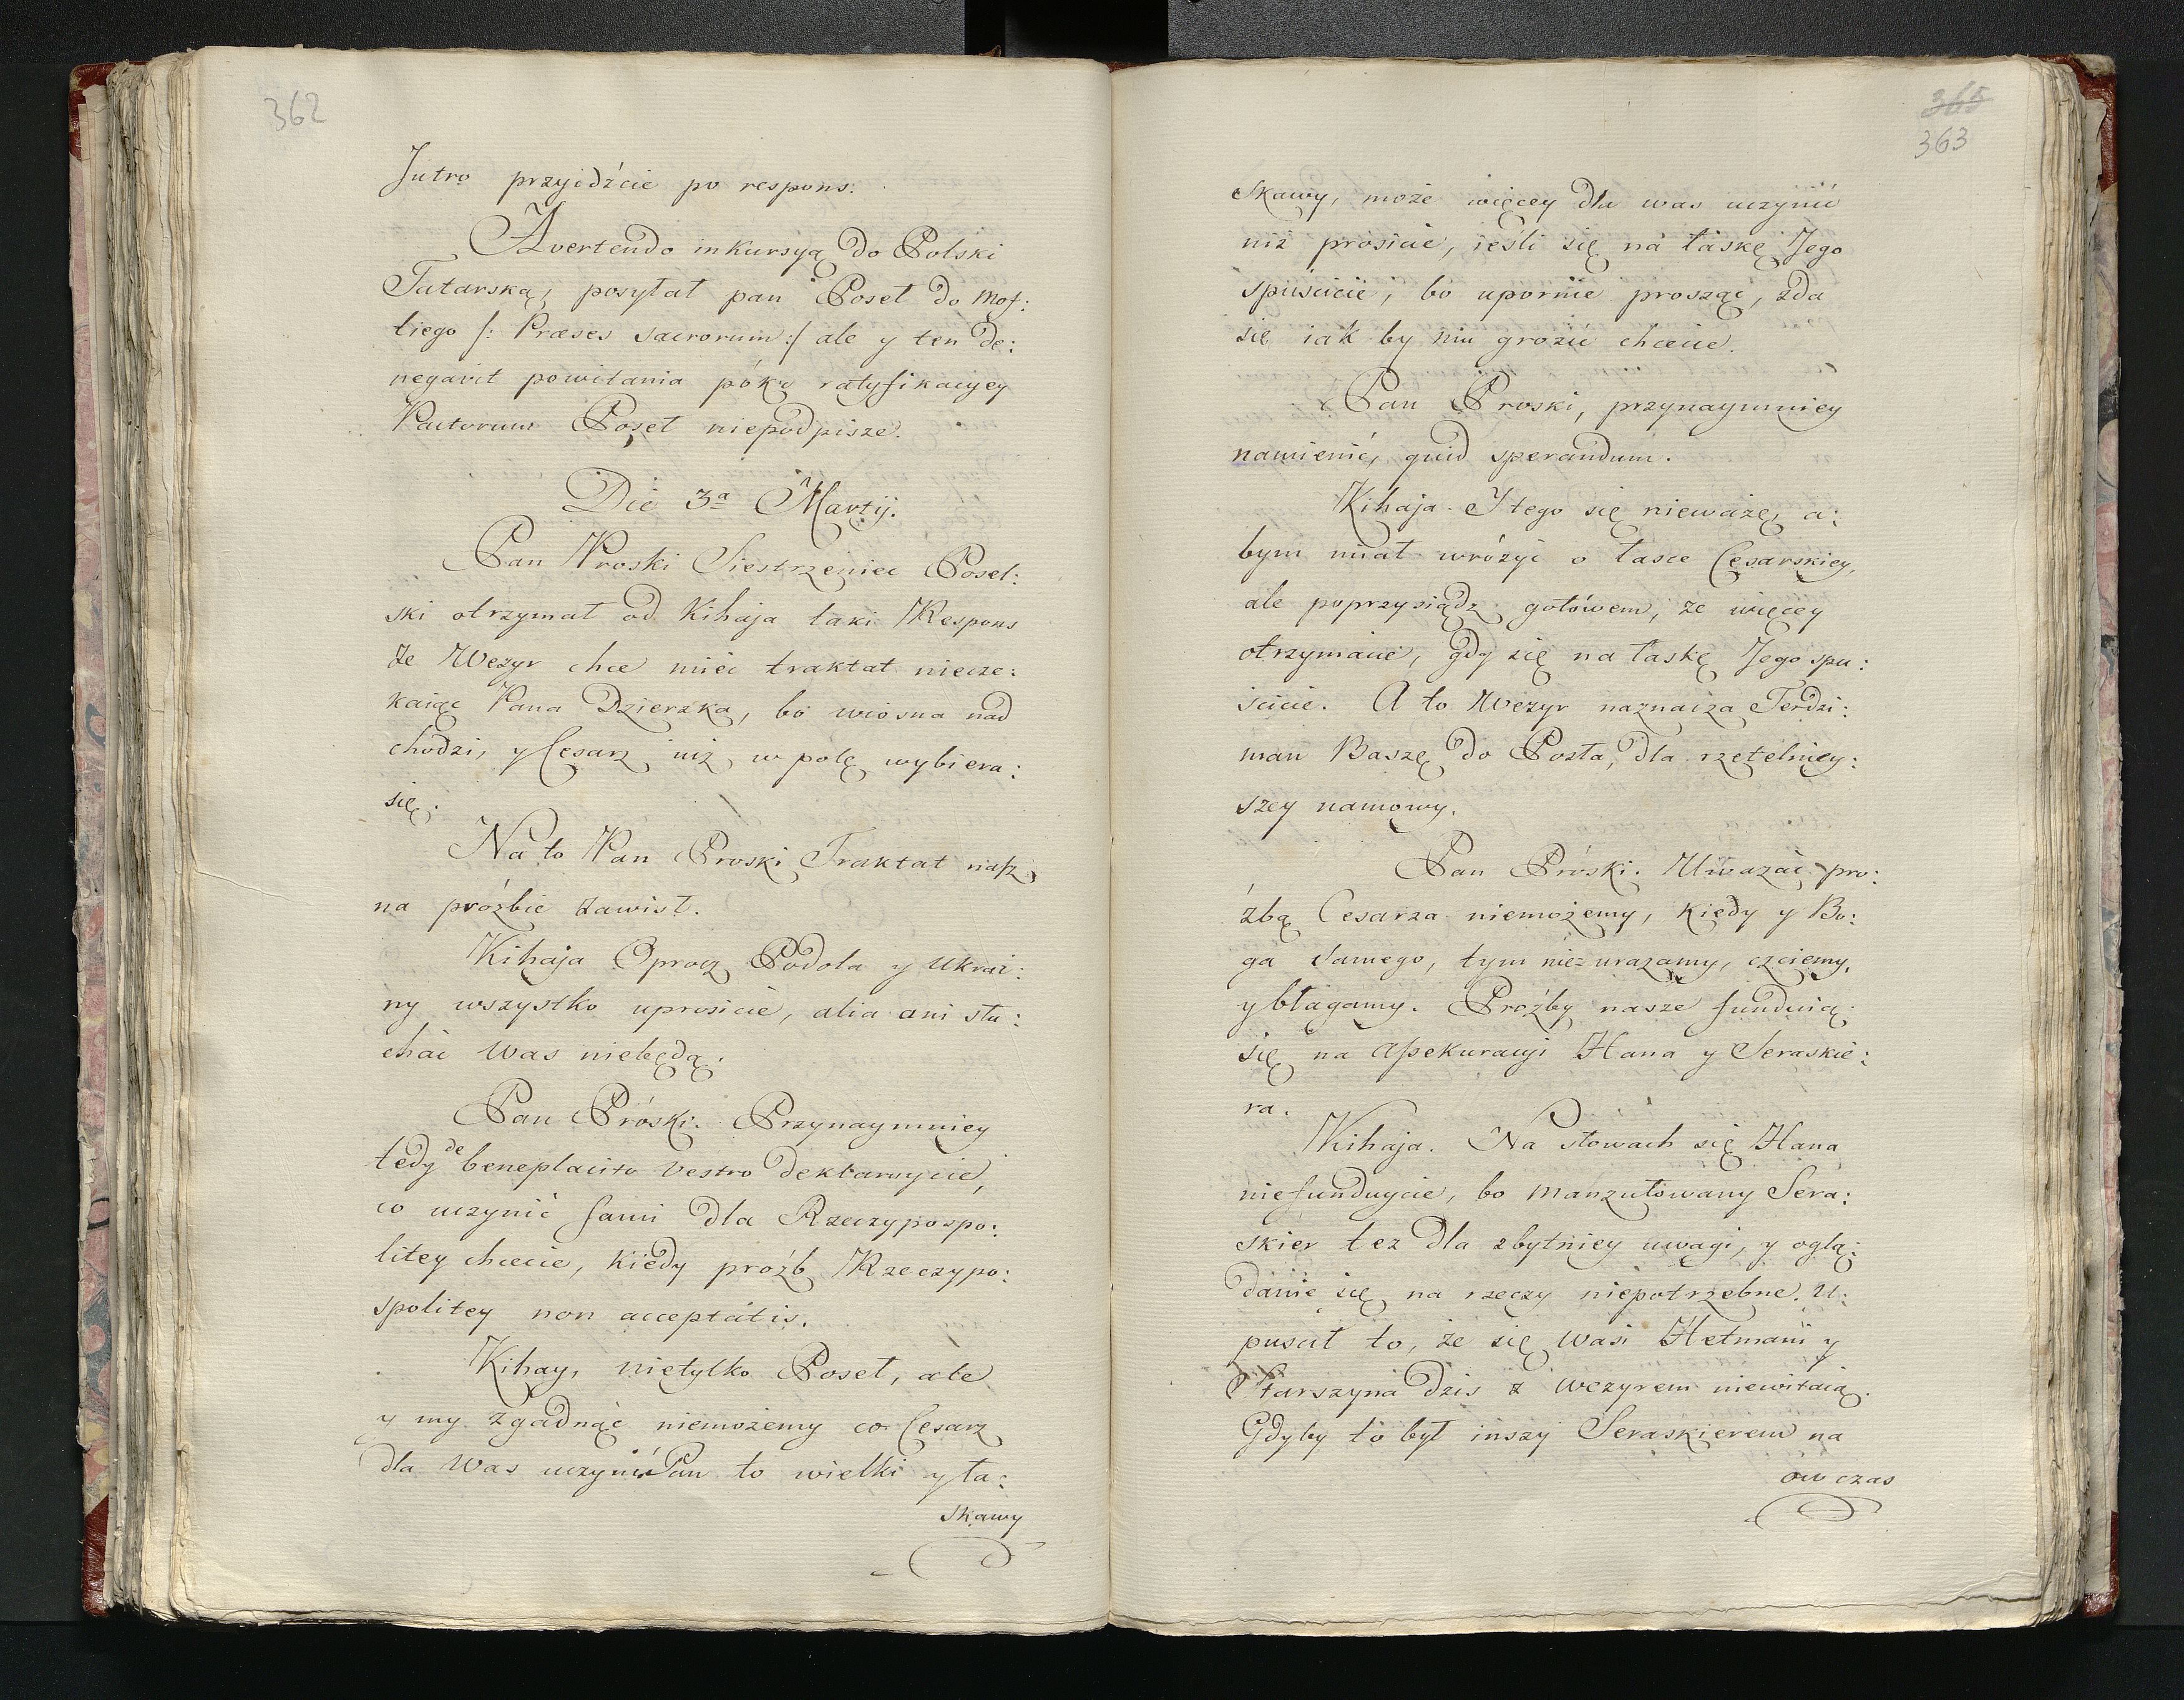 362
Jutro przyidźcie po respons:
Avertendo inkursyą do Polski
Tatarską, posyłał pan Poseł do Mof:
tiego /: Præses sacrorum :/ ale y ten de:
negavit powitania póki ratyfikacyey
Pactorum Poseł niepodpisze.
Die 3a Martij.
Pan Proski Siestrzeniec Posel:
ski otrzymał od Kihaja taki Respons
Że Wezyr chce mieć traktat niecze:
kaiąc Pana Dzierzka, bo wiosna nad
chodzi, y Cesarz iuż w polę wybiera:
się.
Na to Pan Proski Traktat nasz
na proźbie zawisł.
Kihaja Oprocz Podola y Ukrai:
ny wszystko uprosicie, alia ani słu:
chać Was niebędą.
Pan Próski. Przynaymniey
tedy de beneplacito vestro deklaruycie,
co uczynić sami dla Rzeczypospo:
litey chcecie, kiedy proźb Rzeczypo:
spolitey non acceptatis.
Kihay, nietylko Poseł, ale
y my zgadnąć niemożemy co Cesarz
dla Was uczyni Pan to wielki y ła:
skawy
365
363
skawy, może więcey dla was uczynić
niż prosicie, ieśli się na łaskę Jego
spuścicie, bo upornie prosząc, zda
się iak by mu grozić chcecie.
Pan Proski, przynaymniey
namienić, quid sperandum.
Kihaja. Y tego się nieważę, a:
bym miał wróżyć o łasce Cesarskiey,
ale poprzysiądz gotówem, że więcey
otrzymacie, gdy się na łaskę Jego spu:
ścicie. A to Wezyr naznacza Terdzi:
man Baszę do Posła, dla rzetelniey:
szey namowy.
Pan Próski. Uważać pro:
źbą Cesarza niemożemy, kiedy y Bo:
ga samego, tym nie urazamy, czciemy,
y błagamy. Proźby nasze funduią
się na assekuracyi Hana y Seraskie:
ra.
Kihaja. Na słowach się Hana
niefunduycie, bo manzułowany Sera:
skier też dla zbytniey uwagi, y oglą:
danie się na rzeczy niepotrzebne. U:
puścił to, że się Wasi Hetmani y
Starszyna dzis z Wezyrem niewitaią.
Gdyby to był inszy Seraskierem na
ów czas